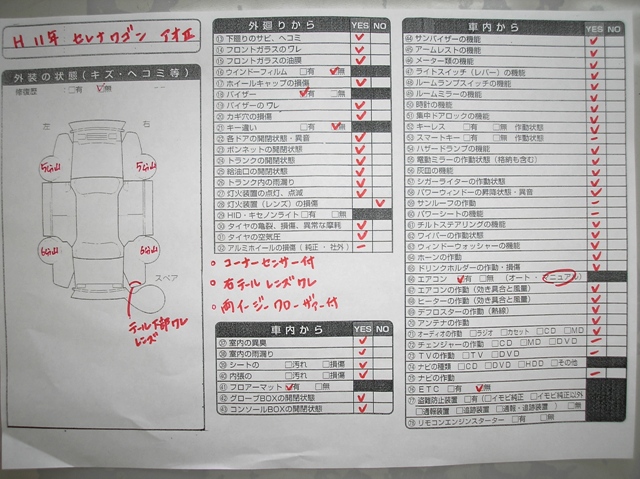 H 11年 セレナワゴン アオⅡ
外装の状態（キズ・ヘコミ等）
修復歴 □有 □無
左 右
5分山 5分山
6分山 6分山
スペア
テール下部ワレ
レンズ
外廻りから YES NO
⑬ 下廻りのサビ、ヘコミ
⑭ フロントガラスのワレ
⑮ フロントガラスの油膜
⑯ ウインドーフィルム □有 □無
⑰ ホイールキャップの損傷
⑱ バイザー □有 □無
⑲ バイザーのワレ
⑳ カギ穴の損傷
㉑ キー違い □有 □無
㉒ 各ドアの開閉状態・異音
㉓ ボンネットの開閉状態
㉔ トランクの開閉状態
㉕ 給油口の開閉状態
㉖ トランク内の雨漏り
㉗ 灯火装置の点灯、点滅
㉘ 灯火装置（レンズ）の損傷
㉙ HID・キセノンライト □有 □無
㉚ タイヤの亀裂、損傷、異常な摩耗
㉛ タイヤの空気圧
㉜ アルミホイールの損傷（純正・社外）
• コーナーセンサー付
• 右テールレンズワレ
• 両イージークローザァー付
車内から YES NO
㊲ 室内の異臭
㊳ 室内の雨漏り
㊴ シートの □汚れ □損傷
㊵ 内張の □汚れ □損傷
㊶ フロアーマット □有 □無
㊷ グローブBOXの開閉状態
㊸ コンソールBOXの開閉状態
車内から YES NO
㊹ サンバイザーの機能
㊺ アームレストの機能
㊻ メーター類の機能
㊼ ライトスイッチ（レバー）の機能
㊽ ルームランプスイッチの機能
㊾ ルームミラーの機能
㊿ 時計の機能
51 集中ドアロックの機能
52 キーレス □有 □無 作動状態
53 スマートキー □有 □無 作動状態
54 ハザードランプの機能
55 電動ミラーの作動状態（格納も含む）
56 灰皿の機能
57 シガーライターの作動状態
58 パワーウィンドーの昇降状態・異音
59 サンルーフの作動
60 パワーシートの機能
61 チルトステアリングの機能
62 ワイパーの作動状態
63 ウィンドーウォッシャーの機能
64 ホーンの作動
65 ドリンクホルダーの作動・損傷
66 エアコン □有 □無（オート・マニュアル）
67 エアコンの作動（効き具合と風量）
68 ヒーターの作動（効き具合と風量）
69 デフロスターの作動（熱線）
70 アンテナの作動
71 オーディオの作動 □ラジオ □カセット □CD □MD
72 チェンジャーの作動 □CD □MD □DVD
73 TVの作動 □TV □DVD
74 ナビの種類 □CD □DVD □HDD □その他
75 ナビの作動
76 ETC □有 □無
77 盗難防止装置 □有（□イモビ純正 □イモビ純正以外
□通報装置 □追跡装置 □通報・追跡装置）□無
78 リモコンエンジンスターター □有 □無